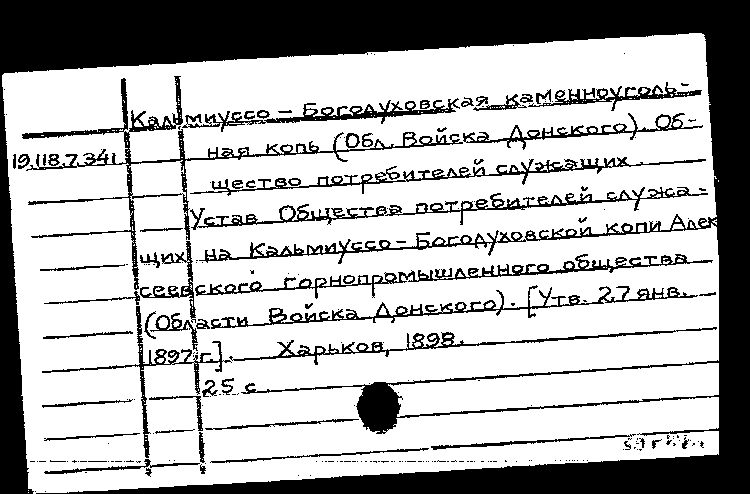 Кальмиуссо – Богодуховская каменноуголь-
19.118.7.341 ная копь (Обл. Войска Донского). Об-
щество потребителей служащих.
Устав Общества потребителей служа-
щих на Кальмиуссо – Богодуховской копи Алек
сеевского горнопромышленного общества
(Области Войска Донского). [Утв. 27 янв.
1897 г.]. Харьков, 1898.
25 с.